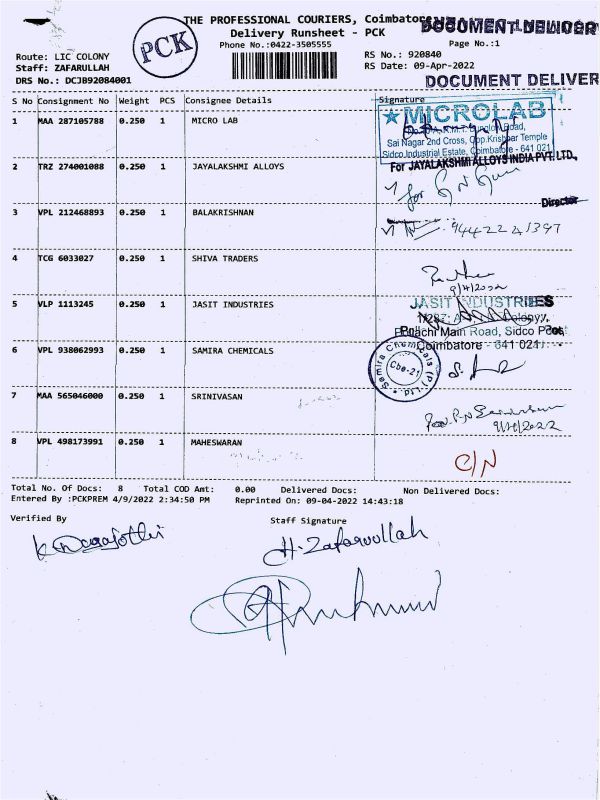 THE PROFESSIONAL COURIERS, Coimbatore
Delivery Runsheet - PCK
Phone No.:0422-3505555
PCK
Page No.:1
Route: LIC COLONY
Staff: ZAFARULLAH
DRS No.: DCJB92084001
RS No.: 920840
RS Date: 09-Apr-2022
DOCUMENT DELIVER
S No Consignment No Weight PCS Consignee Details Signature
1 MAA 287105788 0.250 1 MICRO LAB
MICROLAB
Road,
Sai Nagar 2nd Cross, Opp.Krishnar Temple
Sidco Industrial Estate, Coimbatore - 641 021
2 TRZ 274001088 0.250 1 JAYALAKSHMI ALLOYS
For JAYALAKSHMI ALLOYS INDIA PVT. LTD.,
for
Director
3 VPL 212468893 0.250 1 BALAKRISHNAN
9442241397
4 TCG 6033027 0.250 1 SHIVA TRADERS
9/4/2022
5 VLP 1113245 0.250 1 JASIT INDUSTRIES
JASIT INDUSTRIES
Colony,
Pollachi Main Road, Sidco Post
Coimbatore - 641 021
6 VPL 938062993 0.250 1 SAMIRA CHEMICALS
Samira Chemicals (P) Ltd.
Cbe-21
7 MAA 565046000 0.250 1 SRINIVASAN
9/4/2022
8 VPL 498173991 0.250 1 MAHESWARAN
C/N
Total No. Of Docs: 8 Total COD Amt: 0.00 Delivered Docs: Non Delivered Docs:
Entered By :PCKPREM 4/9/2022 2:34:50 PM Reprinted On: 09-04-2022 14:43:18
Verified By Staff Signature
H. Zafarullah